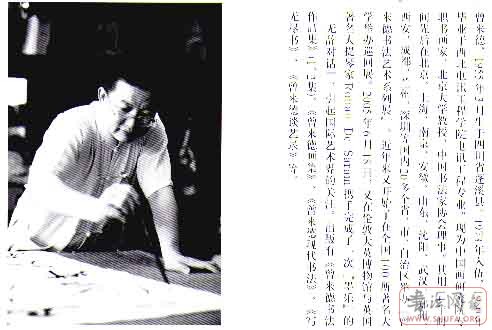 曾来德，1955年9月生于四川省蓬溪县。1974年入伍，
毕业于西北电讯工程学院电讯工程专业。现为中国画研
职书画家，北京大学教授，中国书法家协会理事。其用
间先后在北京、上海、南京、安徽、山东、沈阳、武汉、
西安、成都、广州、深圳等国内20多个省、市、自治区举办
来德书法艺术系列展"。近年来又开始了在全国100所著名大
学举办巡回展。2005年6月15日，又在伦敦大英博物馆与英国
著名大提琴家Rohan De Saram携手完成了一次"墨乐"的
无辞对话"，引起国际艺术界的关注。出版有《曾来德书法
作品集》《曾来德画集》、《曾来德现代书法》、《写
无尽书》、《曾来德谈艺录》等。